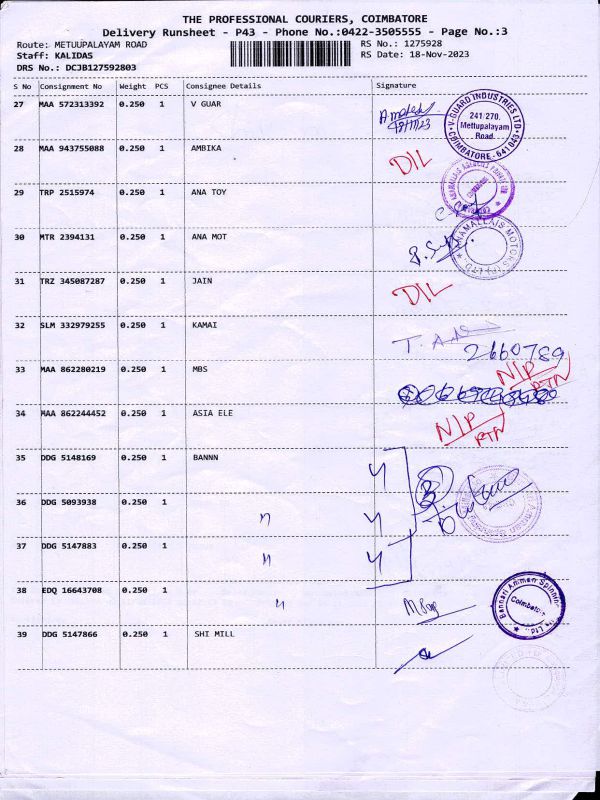 THE PROFESSIONAL COURIERS, COIMBATORE
Delivery Runsheet - P43 - Phone No.:0422-3505555 - Page No.:3
Route: METUUPALAYAM ROAD RS No.: 1275928
Staff: KALIDAS RS Date: 18-Nov-2023
DRS No.: DCJB127592803
S No Consignment No Weight PCS Consignee Details Signature
27 MAA 572313392 0.250 1 V GUAR
V-GUARD INDUSTRIES LTD
241/270,
Mettupalayam
Road.
COIMBATORE - 641 043
28 MAA 943755088 0.250 1 AMBIKA D/L
29 TRP 2515974 0.250 1 ANA TOY
30 MTR 2394131 0.250 1 ANA MOT
ANAMALLAIS MOTORS (P) LTD.
31 TRZ 345087287 0.250 1 JAIN D/L
32 SLM 332979255 0.250 1 KAMAI
2660789
33 MAA 862280219 0.250 1 MBS N/P
RTN
34 MAA 862244452 0.250 1 ASIA ELE N/P
RTN
35 DDG 5148169 0.250 1 BANNN
36 DDG 5093938 0.250 1
37 DDG 5147883 0.250 1
38 EDQ 16643708 0.250 1
Bannari Amman Spinning
Coimbatore
39 DDG 5147866 0.250 1 SHI MILL